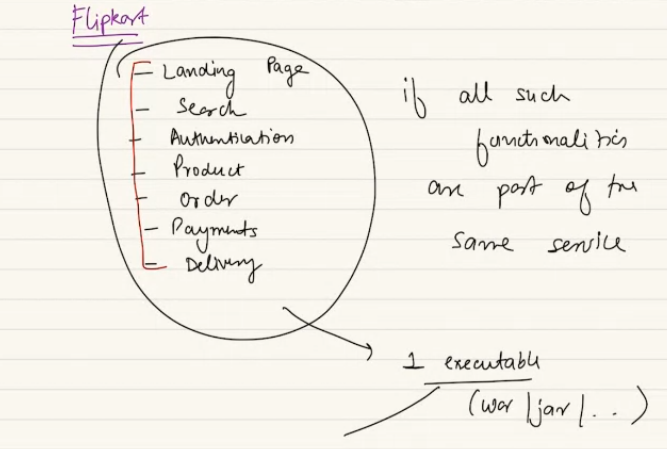 Flipkart
Landing Page
Search
Authentication
Product
Order
Payments
Delivery
if all such
functionalities
are part of the
same service
1 executable
(war | jar | . . )